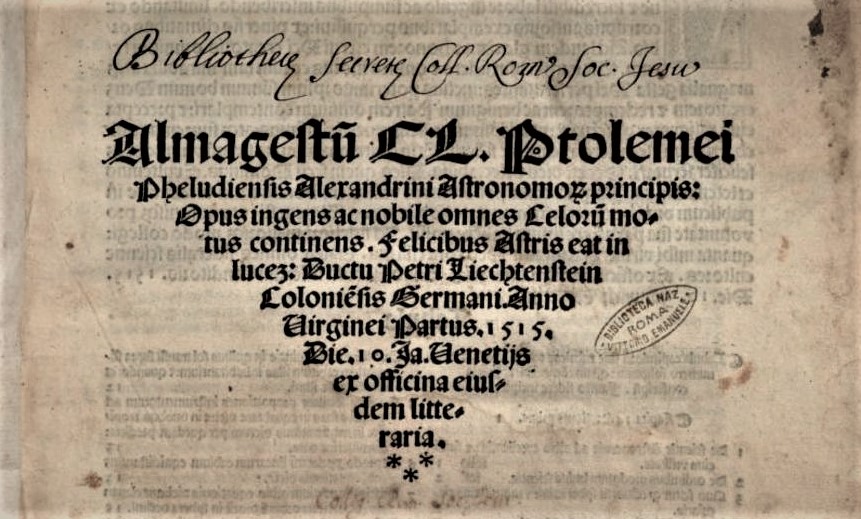 Bibliothecę Secretę Coll. Rom. Soc. Jesu
Almagestū CL. Ptolemei
Pheludiensis Alexandrini Astronomoꝝ principis:
Opus ingens ac nobile omnes Celorū mo-
tus continens. Felicibus Astris eat in
luceꝫ: Ductu Petri Liechtenstein
Coloniēsis Germani. Anno
Virginei Partus. 1515.
Die. 10. Ja. Venetijs
ex officina eius-
dem litte-
raria.
* * *
BIBLIOTECA NAZ
ROMA
VITTORIO EMANUELE